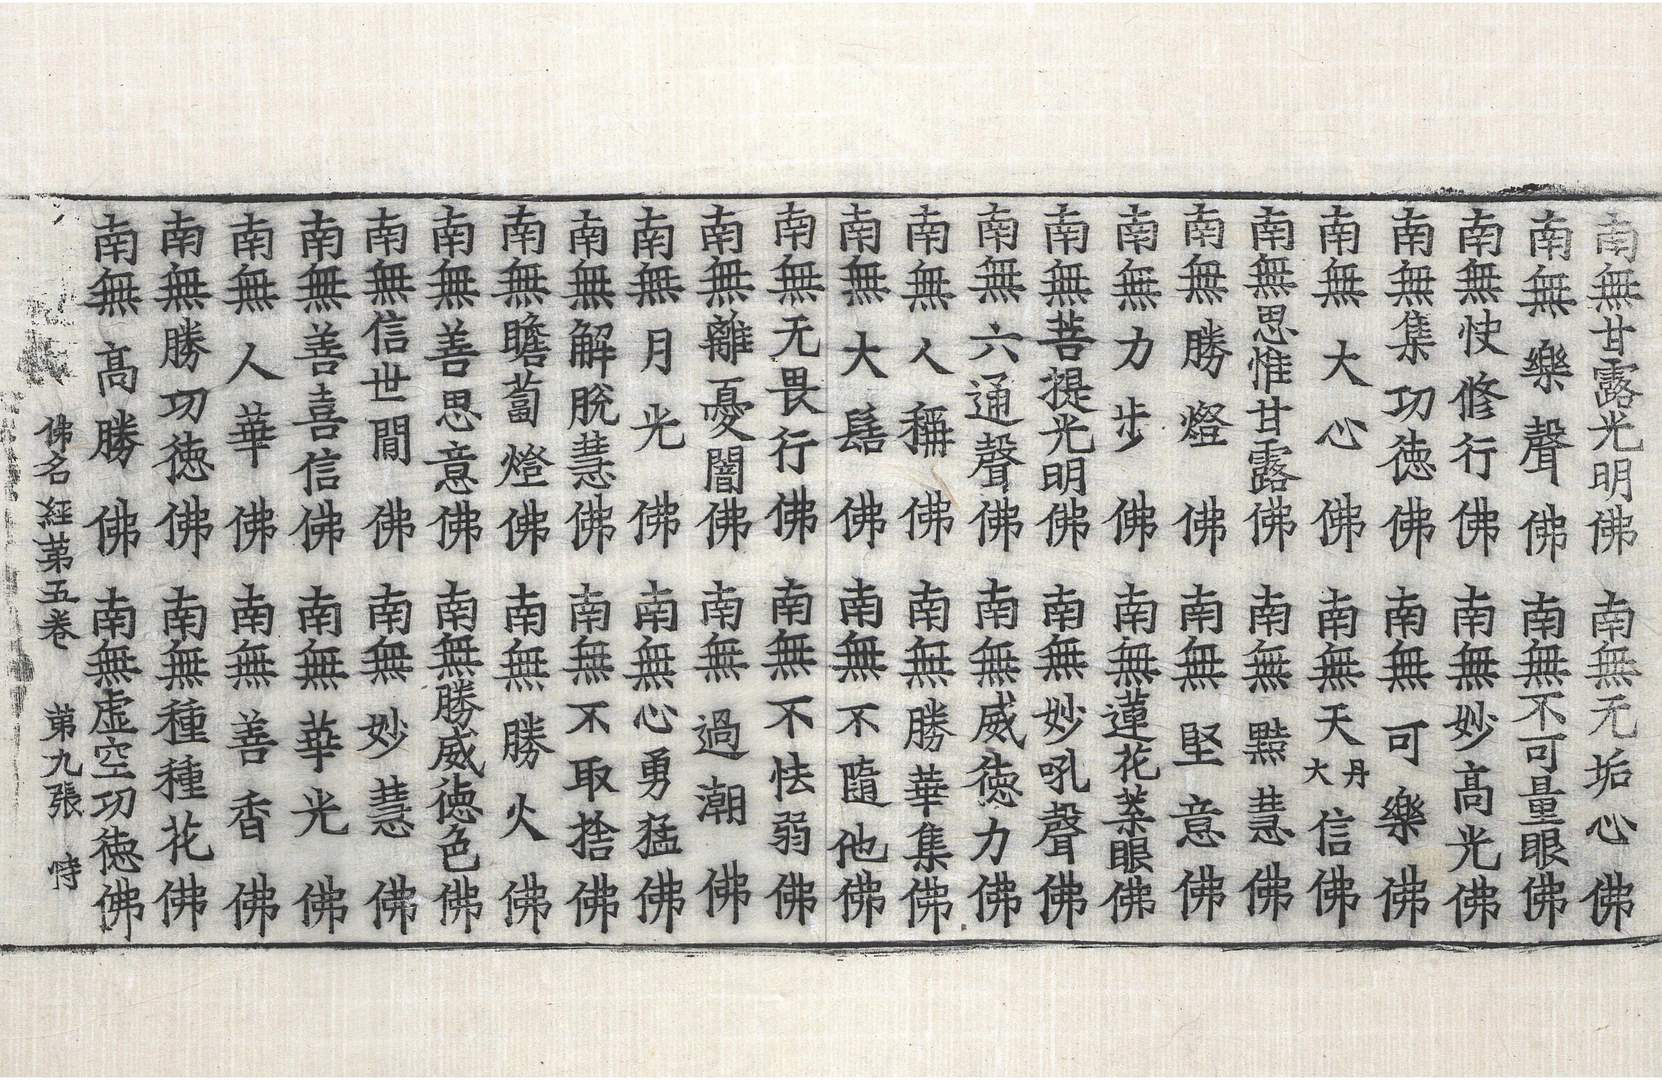 南無甘露光明佛 南無无垢心佛
南無樂聲佛 南無不可量眼佛
南無快修行佛 南無妙高光佛
南無集功德佛 南無可樂佛
南無大心佛 南無天丹大信佛
南無思惟甘露佛 南無黠慧佛
南無勝燈佛 南無堅意佛
南無力步佛 南無蓮花葉眼佛
南無菩提光明佛 南無妙吼聲佛
南無六通聲佛 南無威德力佛
南無人稱佛 南無勝華集佛
南無大髻佛 南無不隨他佛
南無无畏行佛 南無不怯弱佛
南無離憂闇佛 南無過潮佛
南無月光佛 南無心勇猛佛
南無解脫慧佛 南無不取捨佛
南無瞻蔔燈佛 南無勝火佛
南無善思意佛 南無勝威德色佛
南無信世間佛 南無妙慧佛
南無善喜信佛 南無華光佛
南無人華佛 南無善香佛
南無勝功德佛 南無種種花佛
南無高勝佛 南無虛空功德佛
佛名經第五卷 第九張 恃